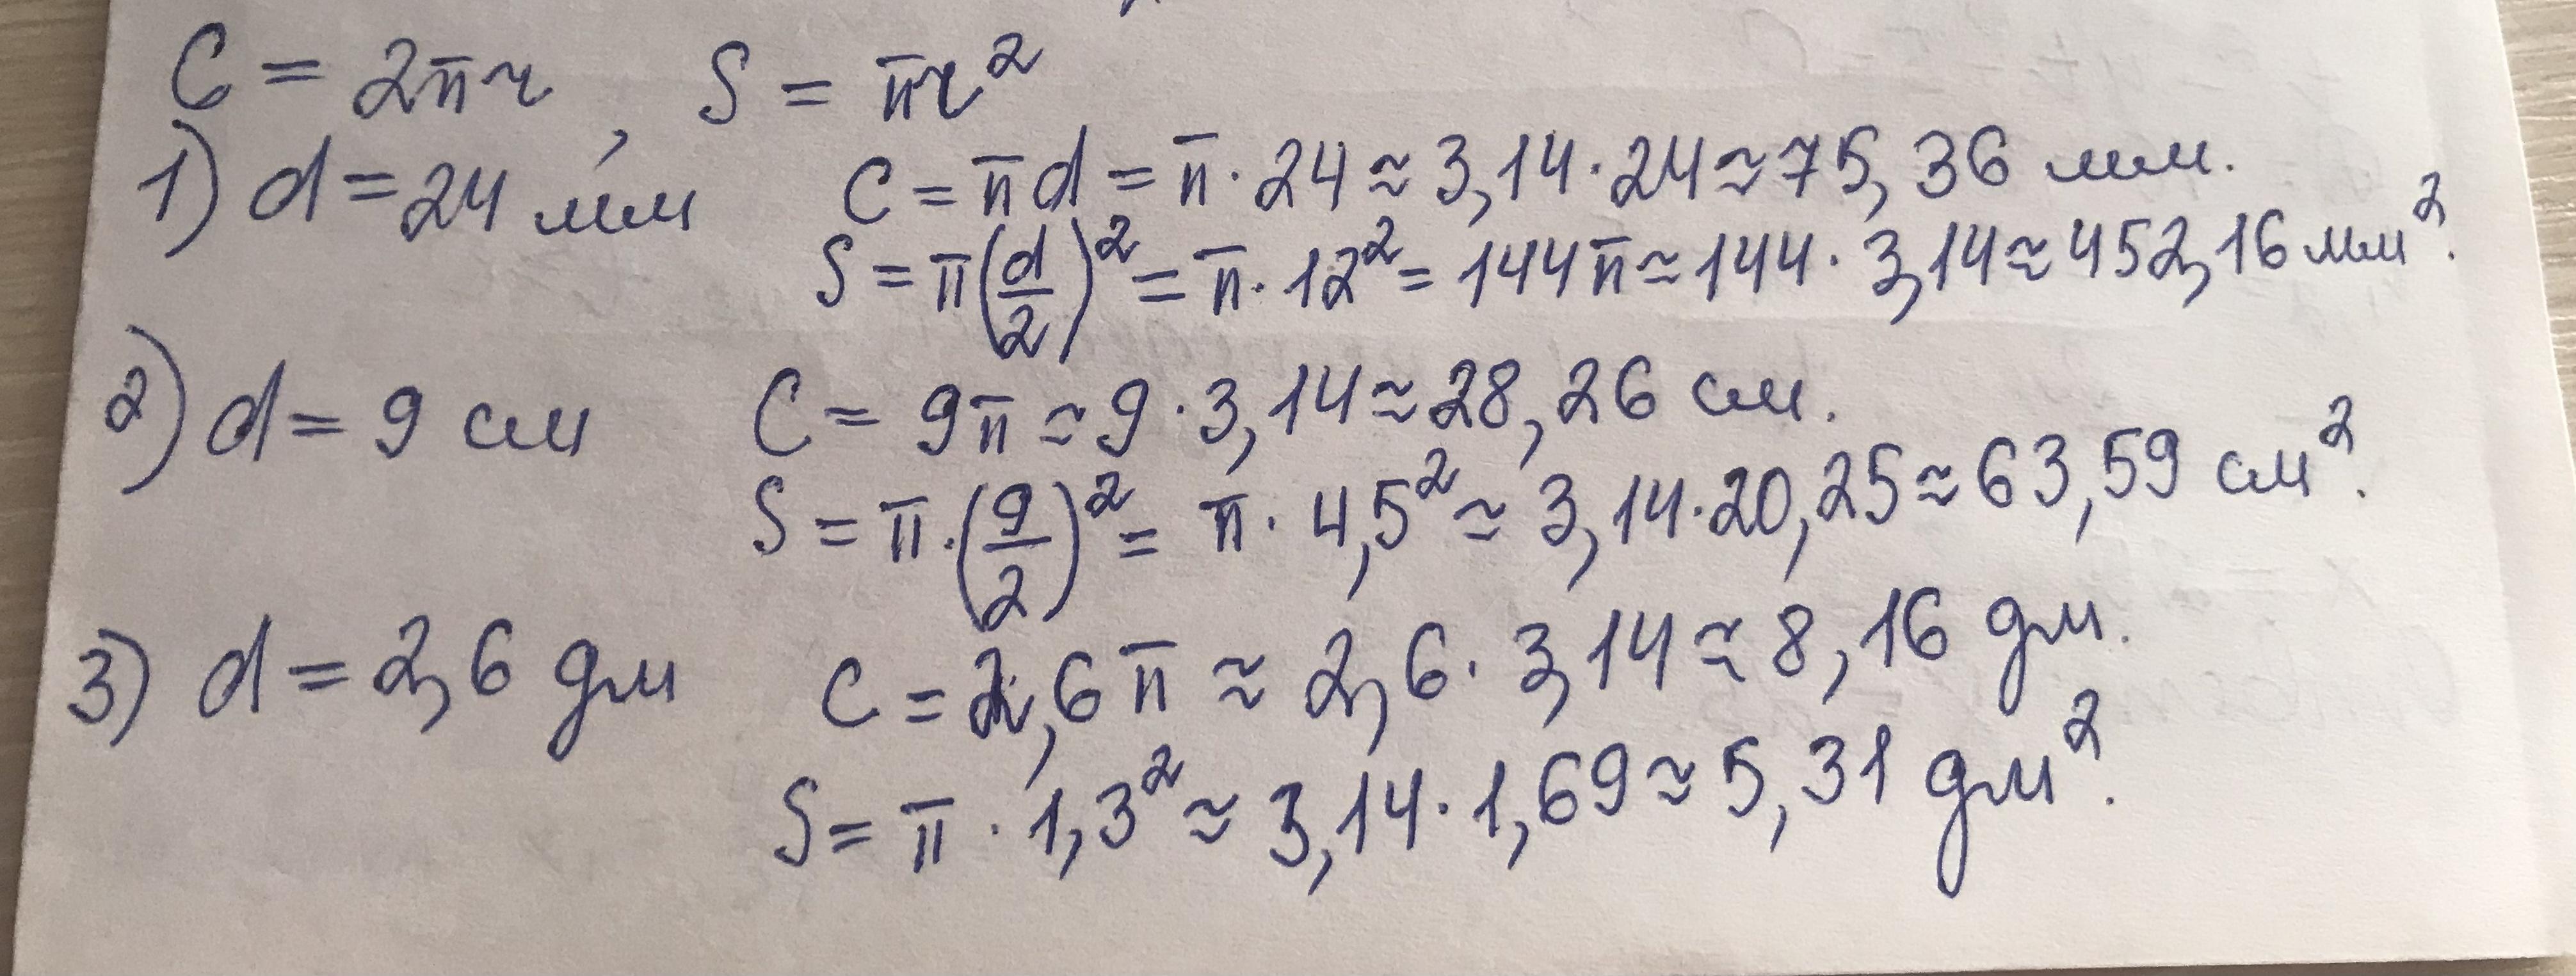 C = 2πr, S = πr²
1) d = 24 мм C = πd = π · 24 ≈ 3,14 · 24 ≈ 75,36 мм.
S = π(d/2)² = π · 12² = 144π ≈ 144 · 3,14 ≈ 452,16 мм².
2) d = 9 см C = 9π ≈ 9 · 3,14 ≈ 28,26 см.
S = π · (9/2)² = π · 4,5² ≈ 3,14 · 20,25 ≈ 63,59 см².
3) d = 2,6 дм C = 2,6π ≈ 2,6 · 3,14 ≈ 8,16 дм.
S = π · 1,3² ≈ 3,14 · 1,69 ≈ 5,31 дм².